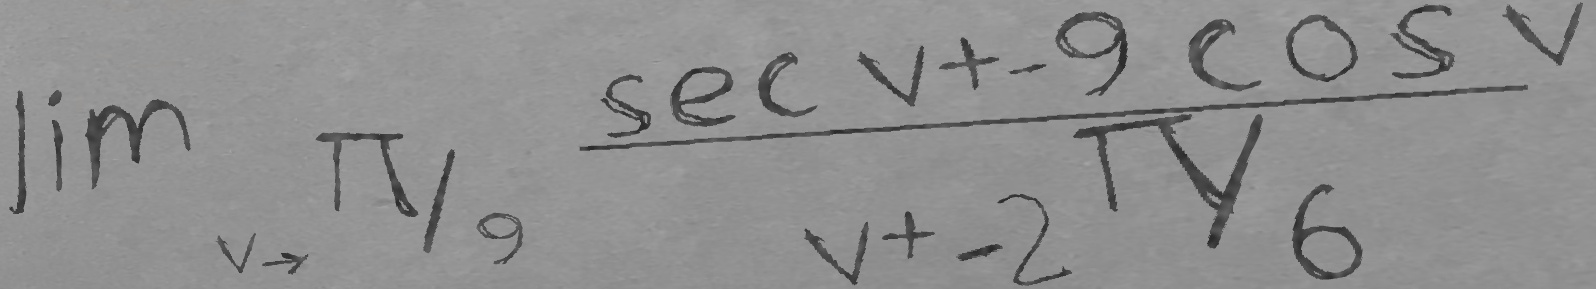 \lim_{v \to \pi/9} \frac{\sec v + -9 \cos v}{v + -2 \pi/6}